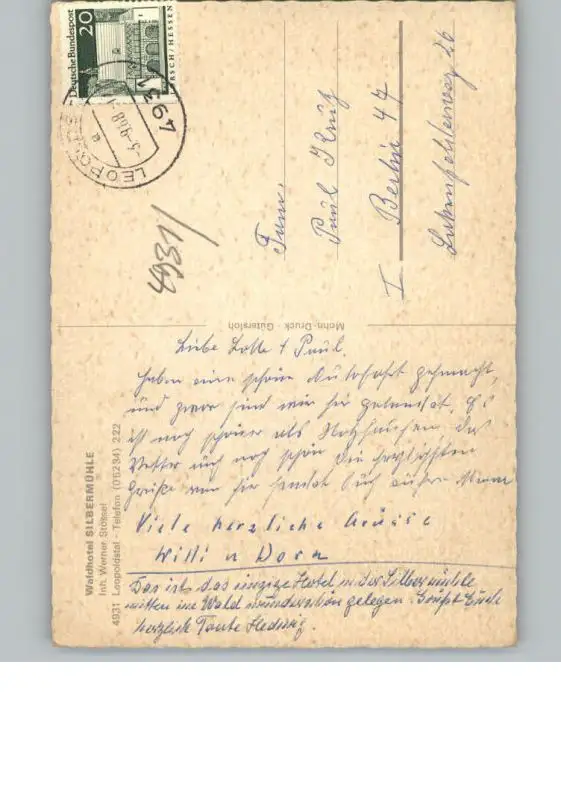 Deutsche Bundespost
20
LORSCH/HESSEN
4931
-5.-9.68
LEOPOLDSTAL
a
4931/
Fam.
Paul
I Berlin 47
26
Mohn-Druck · Gütersloh
Waldhotel SILBERMÜHLE
Inh. Werner Stössel
4931 Leopoldstal - Telefon (05234) 222
Liebe Lotte + Paul.
Haben eine schöne Autofahrt gemacht,
und zwar sind wir hier gelandet. Es
ist noch schöner als Holzhausen das
Wetter auch noch schön die herzlichsten
Grüße von hier sendet Euch
Viele herzliche Grüsse
Willi u Dora
Das ist das einzige Hotel in der Silbermühle
mitten im Wald wunderschön gelegen. Grüßt Euch
herzlich Tante Hedwig.